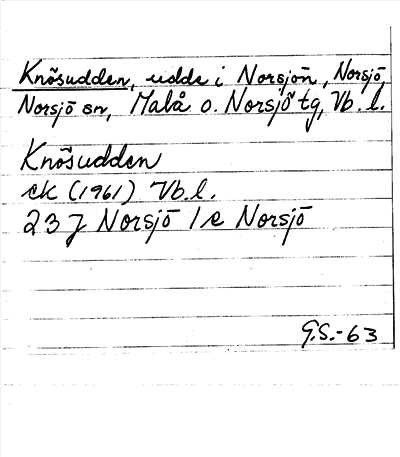 Knösudden, udde i Norsjön, Norsjö,
Norsjö sn, Malå o. Norsjö tg, Vb. l.
Knösudden
ek (1961) Vb. l.
23 J Norsjö 1 e Norsjö
G.S.-63